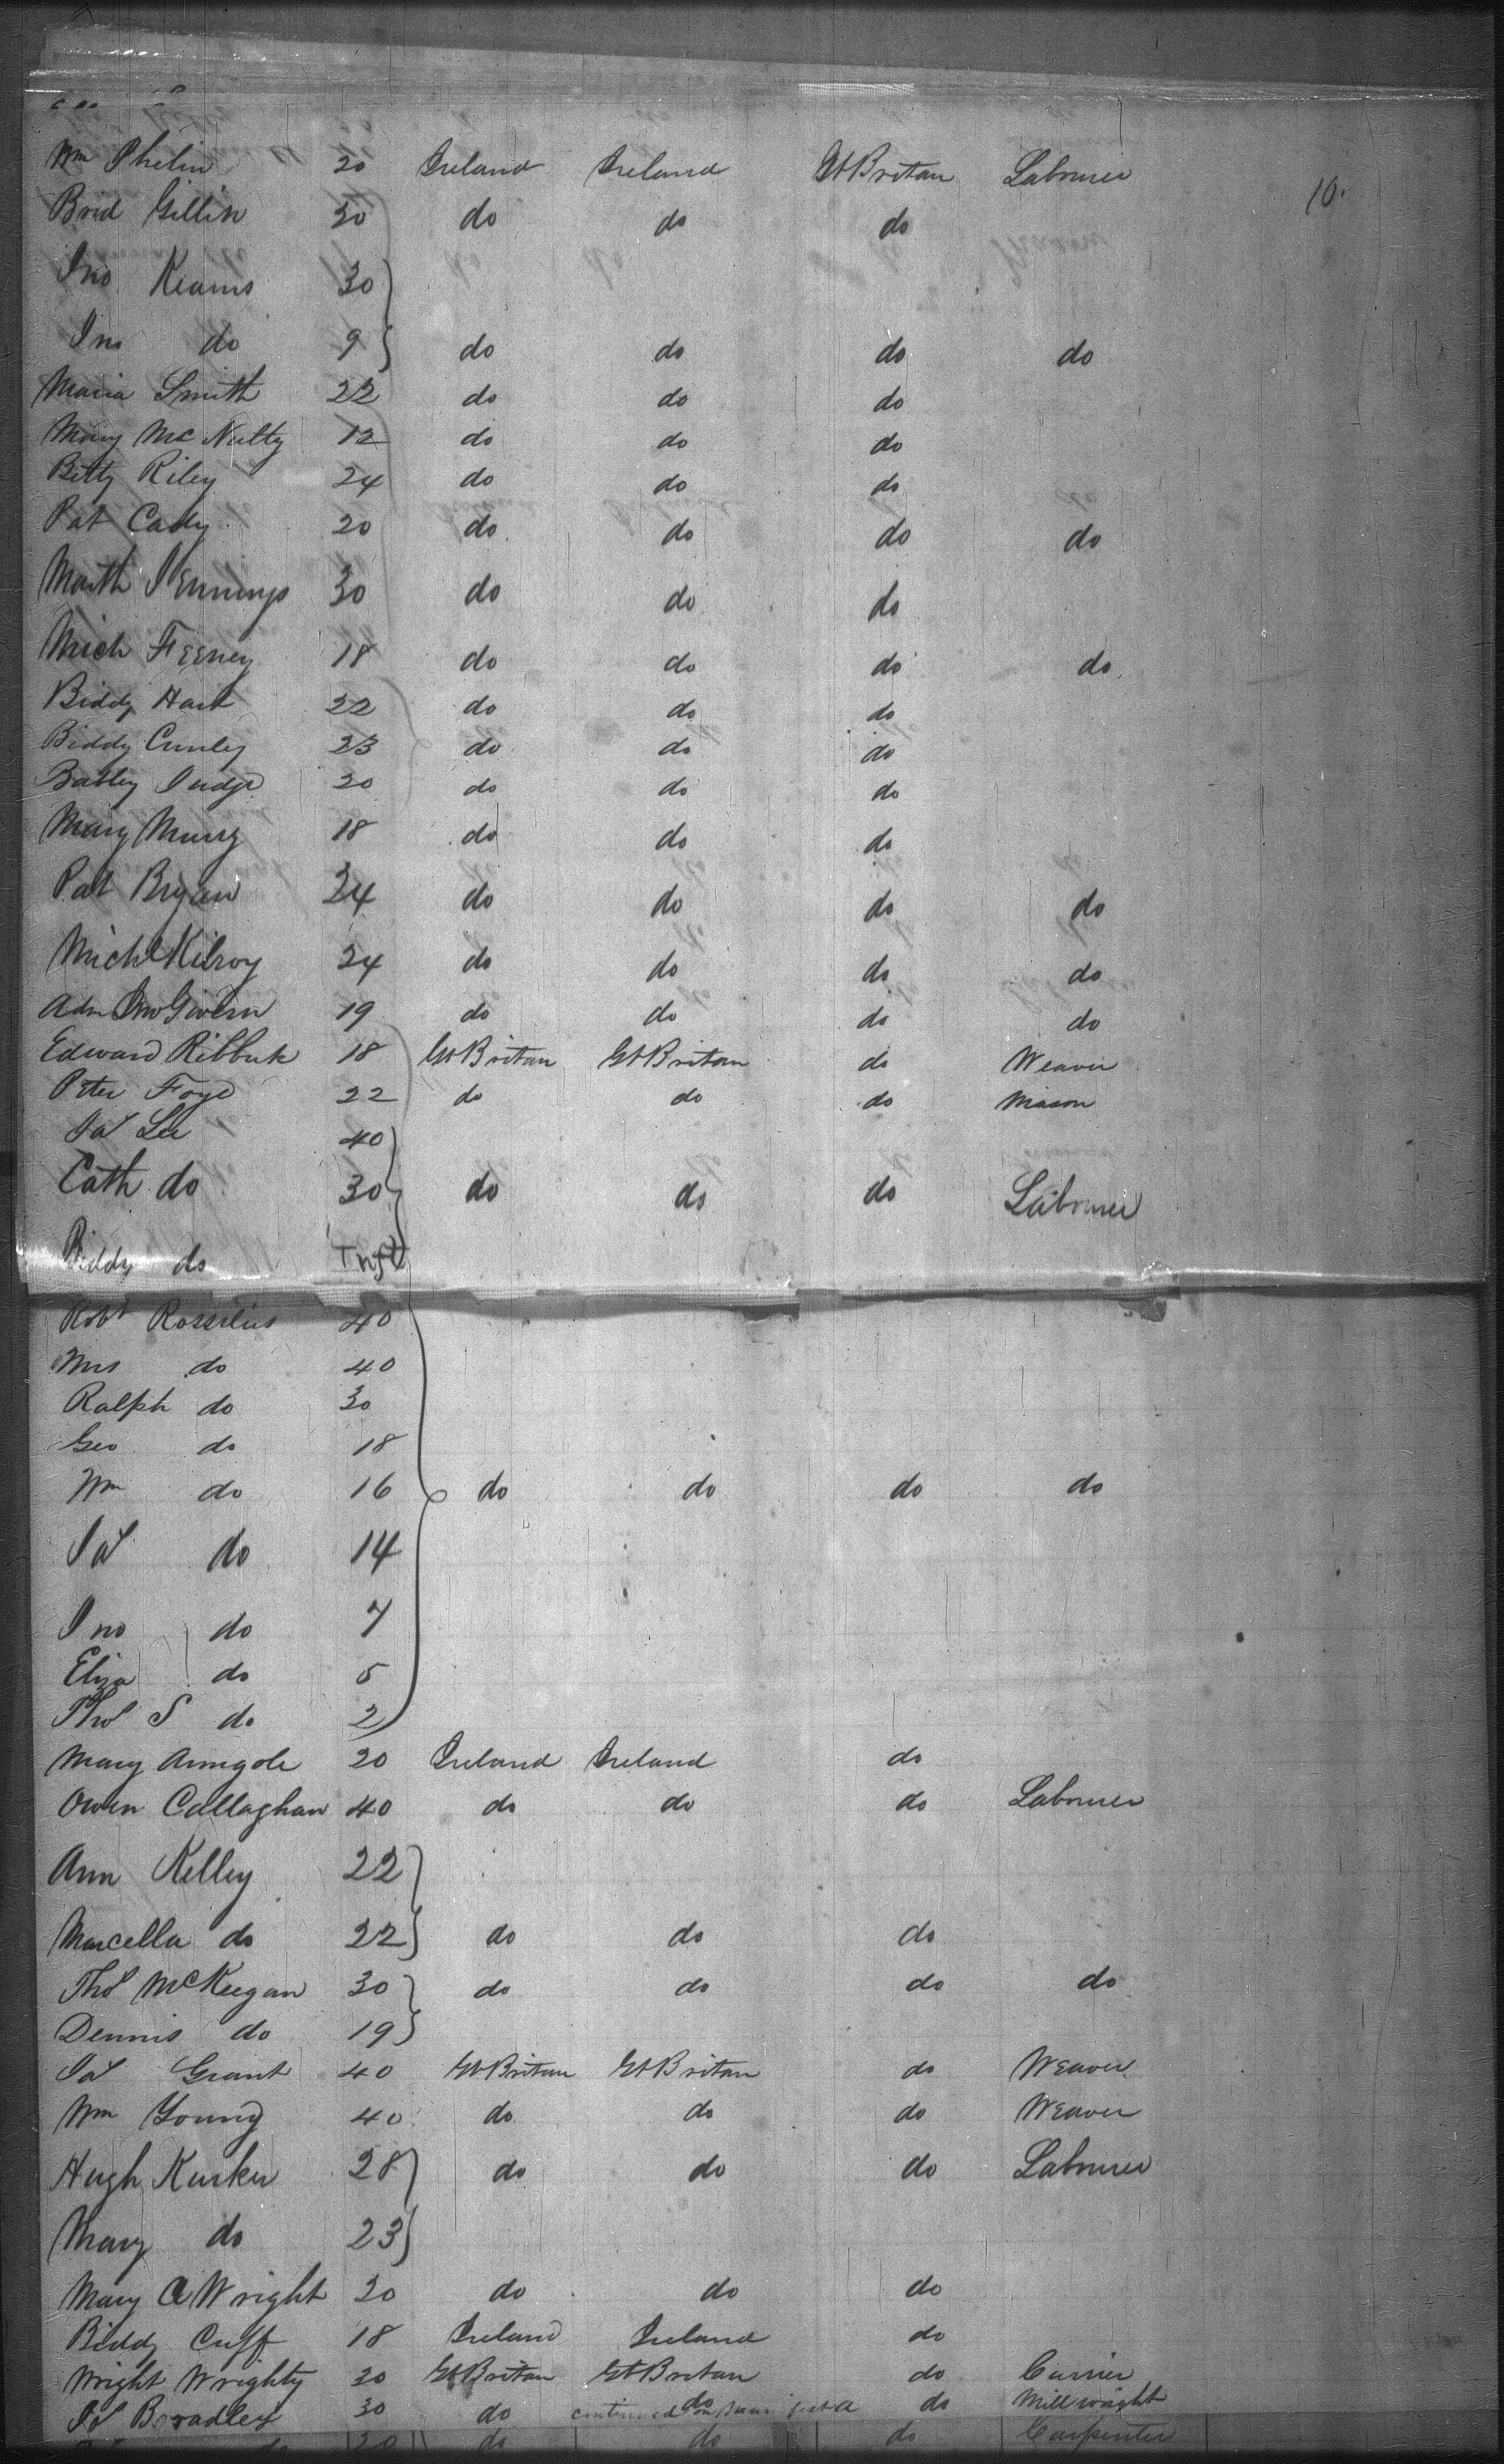 Wm Phelin 20 Ireland Ireland Gt Britan Labourer
10.
Brid Gillin 30 do do do
Jno Kearns 30
Jno do 9 do do do do
Maria Smith 22 do do do
Mary McNulty 12 do do do
Betty Riley 24 do do do
Pat Cady 20 do do do do
Marth Jennings 30 do do do
Mich Feeney 18 do do do do
Biddy Hart 22 do do do
Biddy Cunley 23 do do do
Batley Judge 20 do do do
Mary Murry 18 do do do
Pat Bryan 24 do do do do
Michl Kilroy 24 do do do do
19 do do do do
Edward Ribbuk 18 Gt Britan Gt Britan do Weaver
Peter Foye 22 do do do Mason
Jas Lee 40
Cath do 30 do do do Labourer
Biddy do Inft
Robt 40
Mrs do 40
Ralph do 30
Geo do 18
Wm do 16 do do do do
Jas do 14
Jno do 7
Eliza do 5
Thos S do 2
Mary 20 Ireland Ireland do
Owen Callaghan 40 do do do Labourer
Ann Kelley 22
Marcella do 22 do do do
Thos McKeegan 30 do do do do
Dennis do 19
Jas Grant 40 Gt Britan Gt Britan do Weaver
Wm Young 40 do do do Weaver
Hugh Kurker 28 do do do Labourer
Mary do 23
Mary A Wright 20 do do do
Biddy Cuff 18 Ireland Ireland do
Wright Wrighty 30 Gt Britan Gt Britan do Currier
Jos Bradley 30 do do do Millwright
continued on
do 20 do do do Carpenter